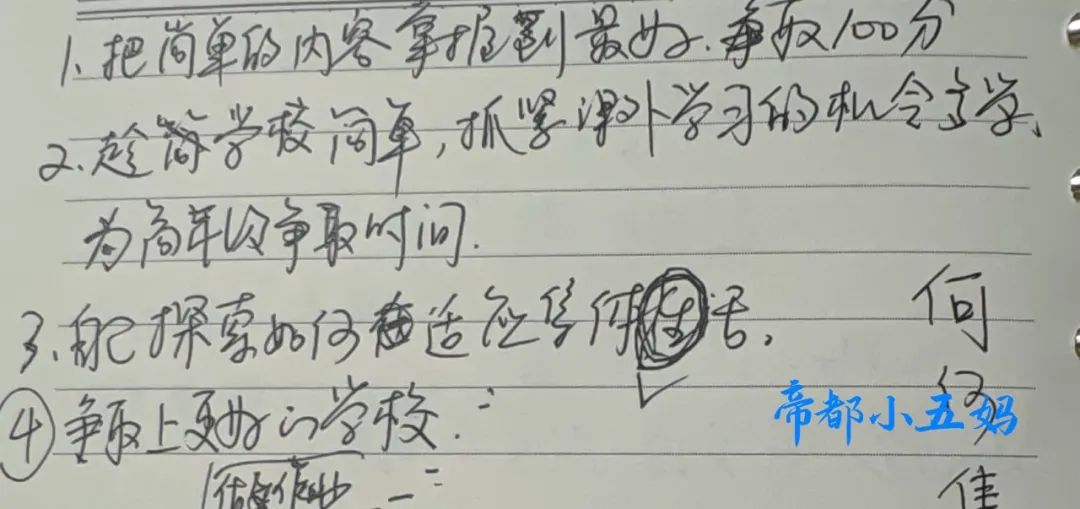 1、把简单的内容掌握到最好、争取100分
2、趁简学校简单,抓紧课外学习的机会多学、
为高年级争取时间.
3、自己探索如何适应集体生活、
④争取上更好的学校.
做作业
何
何
佳
帝都小五妈